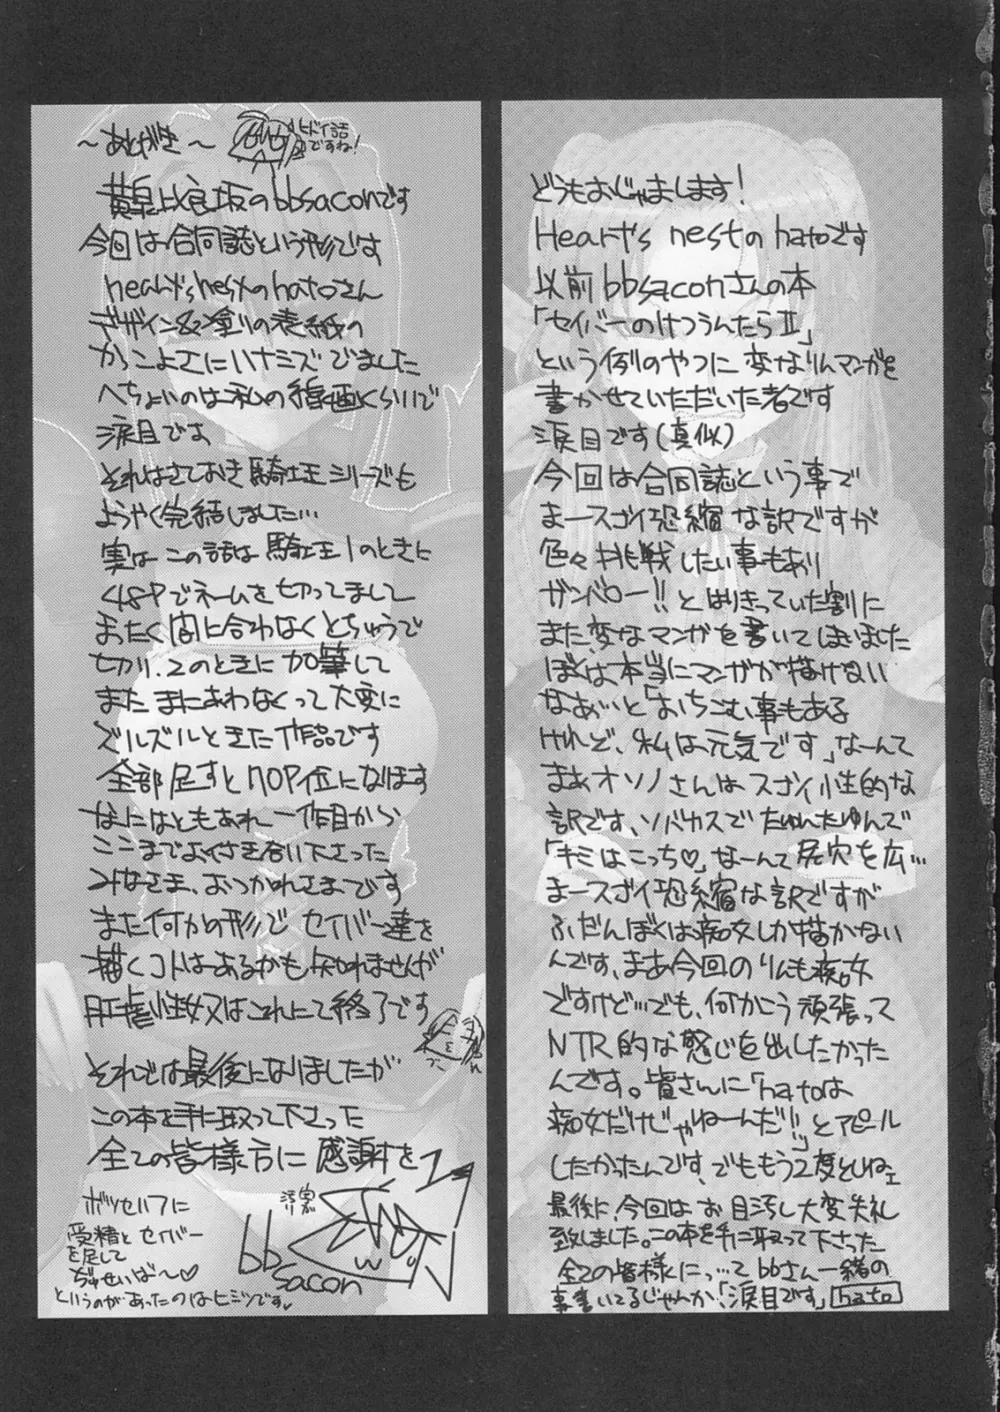 ～あとがき～
ヒドイ話
ですね!
黄泉比良坂のbbsaconです
今回は合同誌という形です
heart'snestのhatoさん
デザイン&塗りの表紙の
かっこよさにハナミズでました
へちょいのは私の線画くらいで
涙目です
それはさておき騎士王シリーズも
ようやく完結しました…
実はこの話は騎士王1のときに
48Pでネームを切ってまして
まったく間に合わなくとちゅうで
切り、2のときに加筆して
またまにあわなくって大変に
ズルズルときた作品です
全部足すと70P位になります
なにはともあれ一作目から
ここまでよくつき合い下さった
みなさま、おつかれさまです
また何かの形でセイバー達を
描くコトはあるかも知れませんが
肛虐性奴はこれにて終了です
それでは最後になりましたが
この本を手に取って下さった
全ての皆様方に感謝を
bb
sacon
ボツセルフに
受精とセイバー
を足して
ぢゅせいば～♡
というのがあったのはヒミツです
どうもおじゃまします!
Heart's nestのhatoです
以前bbsaconさんの本
「セイバーのけつうんたらⅡ」
という例のやつに変なりんマンガを
書かせていただいた者です
涙目です(真似)
今回は合同誌という事で
まースゴイ恐縮な訳ですが
色々挑戦したい事もあり
ガンバロー!!とはりきっていた割に
また変なマンガを書いてしまいました
ぼくは本当にマンガが描けない
なぁ、と「おちこむ事もある
けれど、私は元気です」なーんて
まぁオソノさんはスゴイ性的な
訳です、ソバカスでたゆんたゆんで
「キミはこっち♡」なーんて尻穴を広…
まースゴイ恐縮な訳ですが
ふだんぼくは痴女しか描かない
んです、まあ今回のりんも痴女
ですけど…でも、何かこう頑張って
NTR的な感じを出したかった
んです。皆さんに「hatoは
痴女だけじゃねーんだ!!」とアピール
したかったんです、でももう2度としねェ
最後に、今回はお目汚し大変失礼
致しました。この本を手に取って下さった
全ての皆様にっ…てbbさん一緒の
事書いてるじゃんか、「涙目です」hato